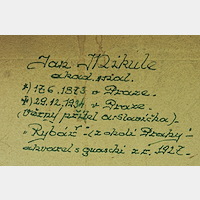 Jan Mikule
akad. mal.
*) 17.6. 1873 v Praze.
†) 29.12. 1934 v Praze.
(věrný přítel ant. Slavíčka).
"Rybář" - (z okolí Prahy) -
akvarel s guaschí z r. 1927.-